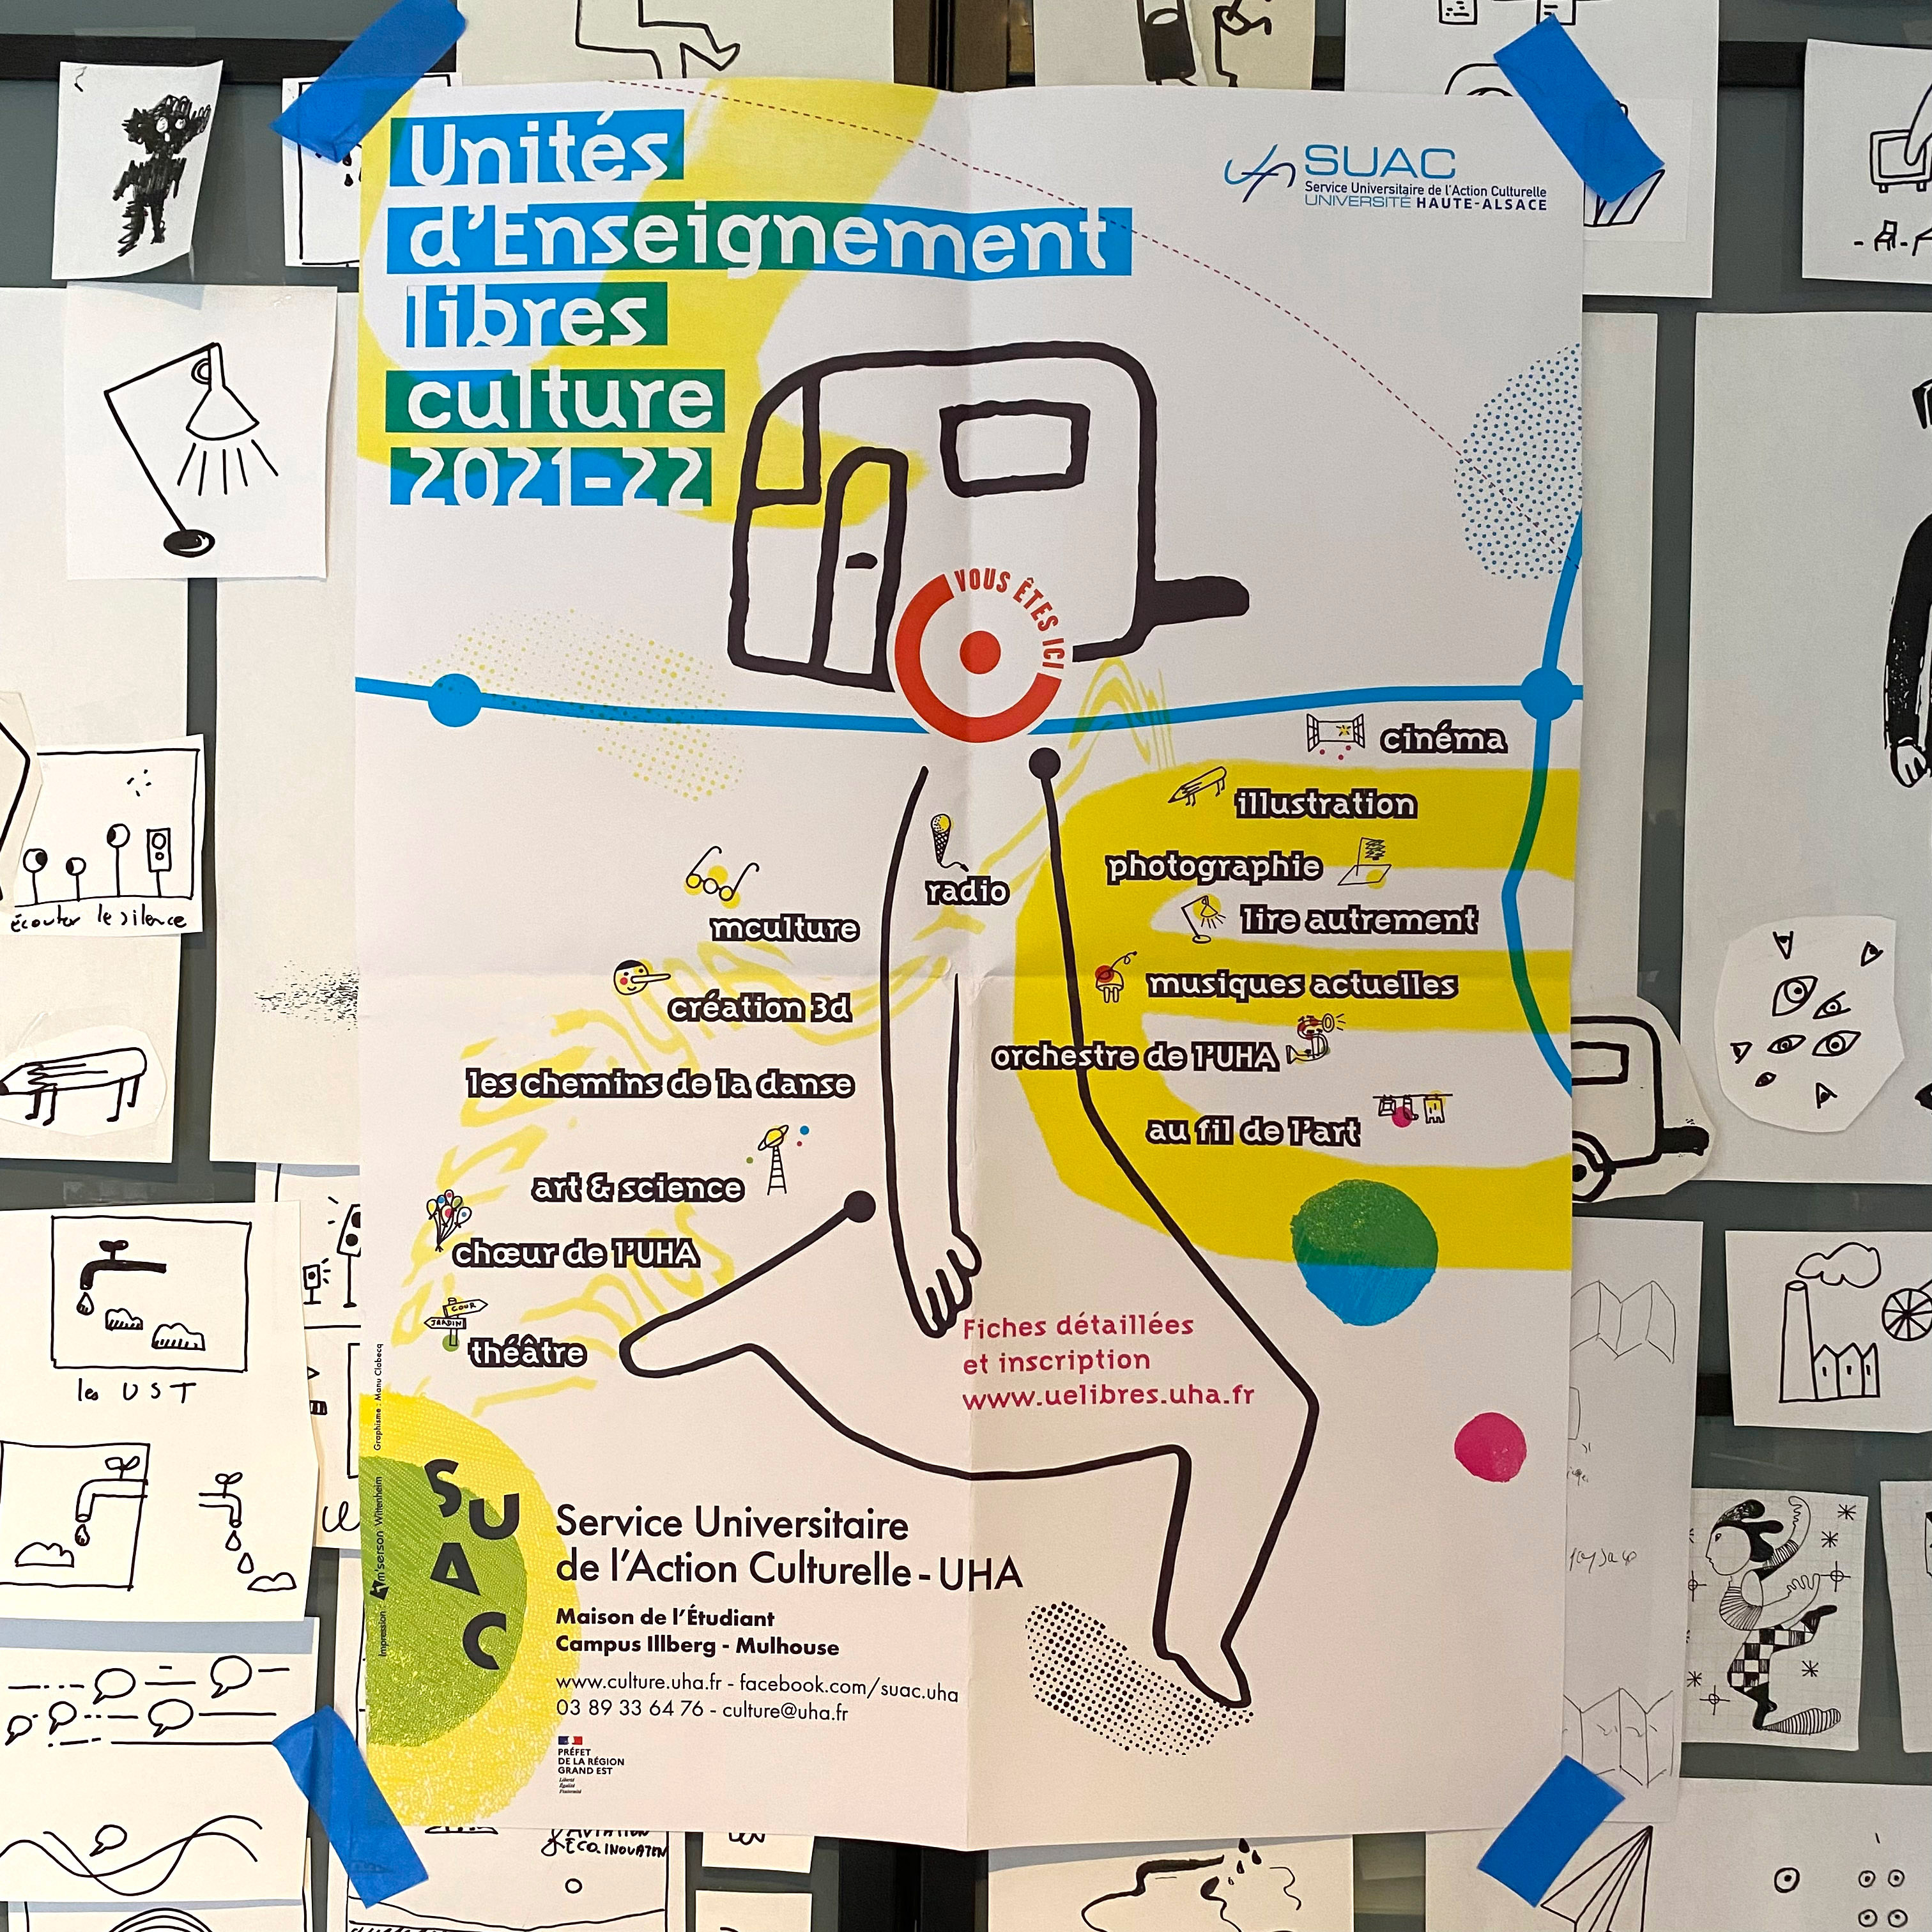 Unités
d'Enseignement
libres
culture
2021-22
SUAC
Service Universitaire de l'Action Culturelle
UNIVERSITÉ HAUTE-ALSACE
VOUS ÊTES ICI
cinéma
illustration
photographie
lire autrement
musiques actuelles
orchestre de l'UHA
au fil de l'art
radio
mculture
création 3d
les chemins de la danse
art & science
chœur de l'UHA
COUR
JARDIN
théâtre
Fiches détaillées
et inscription
www.uelibres.uha.fr
Graphisme : Manu Clabecq
Impression - m'serson Wittenheim
SUAC
Service Universitaire
de l'Action Culturelle - UHA
Maison de l'Étudiant
Campus Illberg - Mulhouse
www.culture.uha.fr - facebook.com/suac.uha
03 89 33 64 76 - culture@uha.fr
PRÉFET
DE LA RÉGION
GRAND EST
Liberté
Égalité
Fraternité
écouter le silence
les UST